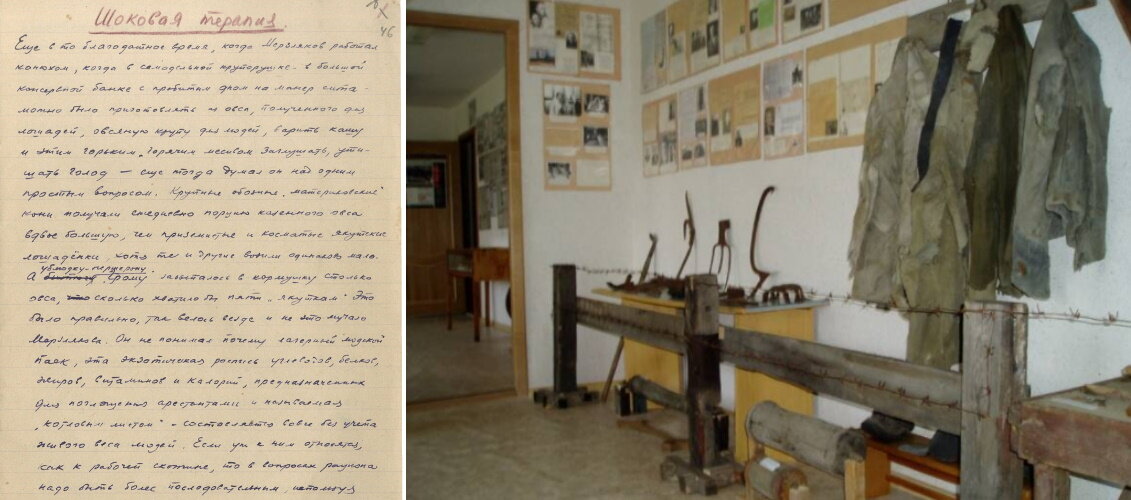 Шоковая терапия.
46
Еще в то благодатное время, когда Мерзляков работал
конюхом, когда в самодельной крупорушке – в большой
консервной банке с пробитым дном на манер сита –
можно было приготовлять из овса, полученного для
лошадей, овсяную крупу для людей, варить кашу
и этим горьким, горячим месивом заглушать, ути-
шать голод — еще тогда думал он над одним
простым вопросом. Крупные обозные, материковские
кони получали ежедневно порцию казенного овса
вдвое большую, чем приземистые и косматые якутские
лошаденки, хотя те и другие возили одинаково мало.
ублюдку-першерону
А Грому засыпалось в кормушку столько
овса, сколько хватило бы пяти „якуткам“. Это
было правильно, так велось везде и не это мучало
Мерзлякова. Он не понимал почему лагерный людской
паек, эта экзотическая роспись углеводов, белков,
жиров, витаминов и калорий, предназначенных
для поглощения арестантами и называемая
„котловым листом“ – составляется вовсе без учета
живого веса людей. Если уж к ним относятся,
как к рабочей скотине, то в вопросах рациона
надо быть более последовательным,